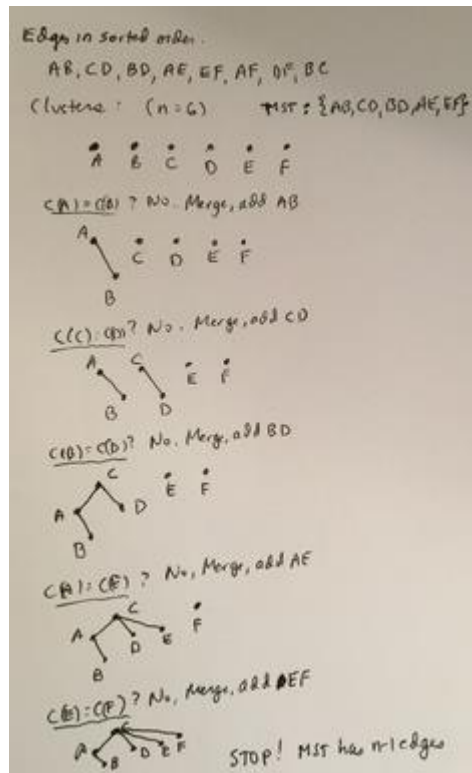 Edges in sorted order.
AB, CD, BD, AE, EF, AF, DF, BC
Clusters: (n=6) MST: {AB, CD, BD, AE, EF}
A B C D E F
C(A)=C(B)? No. Merge, add AB
A
C D E F
B
C(C)=C(D)? No. Merge, add CD
A C E F
B D
C(B)=C(D)? No, Merge, add BD
C
E F
A D
B
C(A)=C(E)? No, Merge, add AE
C
F
A D E
B
C(E)=C(F)? No, Merge, add EF
C
A B D E F
STOP! MST has n-1 edges